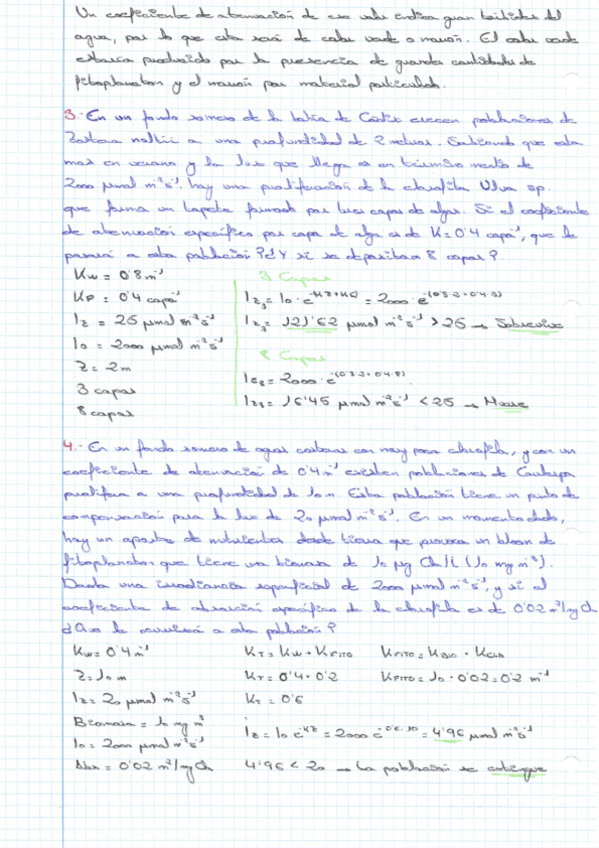 Un coeficiente de atenuación de ese valor indica gran turbidez del
agua, por lo que esta será de color verde o marrón. El color verde
estaría producido por la presencia de grandes cantidades de
fitoplancton y el marrón por material particulado.
3.- En un fondo somero de la bahía de Cádiz crecen poblaciones de
Zostera noltii a una profundidad de 2 metros. Sabiendo que esta
mos en verano y la luz que llega es en término medio de
2000 µmol m⁻²s⁻¹. hay una proliferación de la clorofita Ulva sp.
que forma un tapete formado por tres capas de algas. Si el coeficiente
de atenuación específico por capa de alga es de K=0'4 capa⁻¹, que le
pasará a esta población? ¿Y si se depositan 8 capas?
Kw = 0'8 m⁻¹
KP = 0'4 capa⁻¹
Iz = 25 µmol m⁻²s⁻¹
I0 = 2000 µmol m⁻²s⁻¹
Z = 2m
3 capas
8 capas
3 Capas
Iz₃ = I0 · e^-(KZ+KC) = 2000 · e^-(0'8·2+0'4·3)
Iz₃ = 121'62 µmol m⁻²s⁻¹ > 25 → Sobrevive
8 Capas
Iz₈ = 2000 · e^-(0'8·2+0'4·8)
Iz₈ = 16'45 µmol m⁻²s⁻¹ < 25 → Muere
4.- En un fondo somero de aguas costeras con muy poca clorofila, y con un
coeficiente de atenuación de 0'4 m⁻¹ existen poblaciones de Caulerpa
prolifera a una profundidad de 10 m. Esta población tiene un punto de
compensación para la luz de 20 µmol m⁻²s⁻¹. En un momento dado,
hay un aporte de nutrientes desde tierra que provoca un bloom de
fitoplancton que tiene una biomasa de 10 µg Chla/l (10 mg m⁻³).
Dada una irradiancia superficial de 2000 µmol m⁻²s⁻¹, y si el
coeficiente de absorción específico de la clorofila es de 0'02 m²/mg Chla
¿Qué le ocurrirá a esta población?
Kw = 0'4 m⁻¹
Z = 10 m
Iz = 20 µmol m⁻²s⁻¹
Biomasa = 10 mg m⁻³
I0 = 2000 µmol m⁻²s⁻¹
Abs = 0'02 m²/mg Chla
KT = Kw + KFITO
KT = 0'4 + 0'2
KT = 0'6
KFITO = KBIO · KChla
KFITO = 10 · 0'02 = 0'2 m⁻¹
Iz = I0 e^-KZ = 2000 e^-0'6·10 = 4'96 µmol m⁻²s⁻¹
4'96 < 20 → La población se extingue